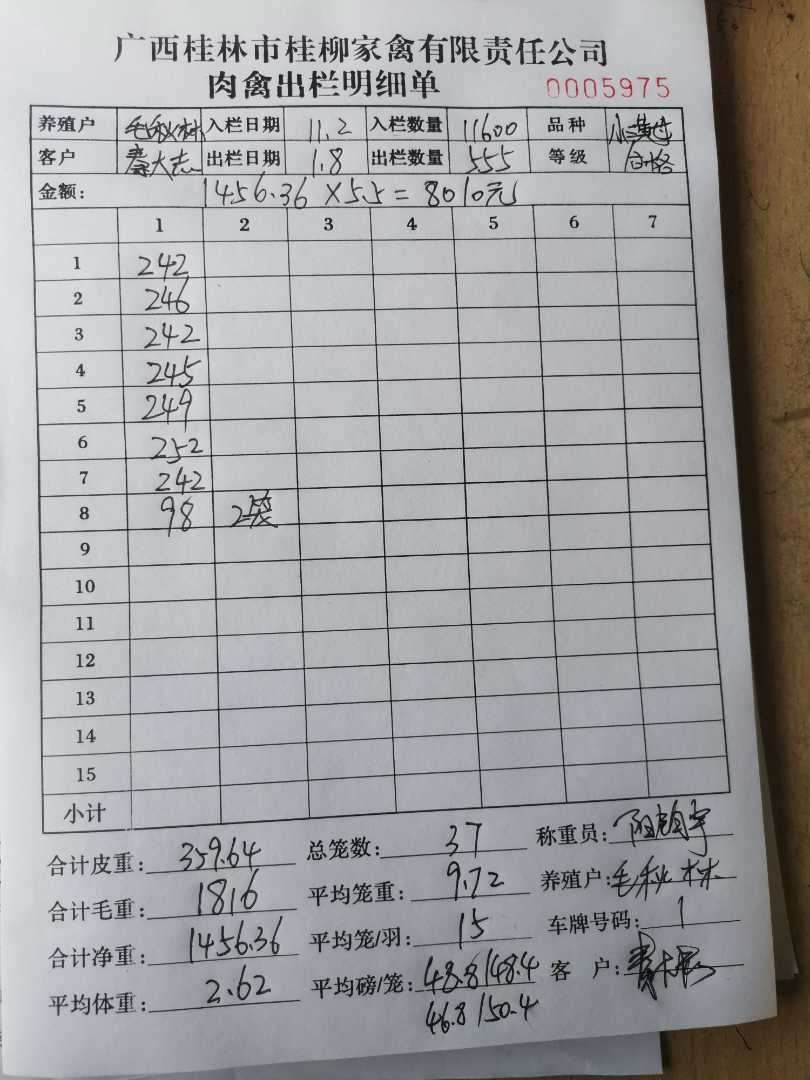 广西桂林市桂柳家禽有限责任公司
肉禽出栏明细单 0005975
养殖户 毛秋林 入栏日期 11.2 入栏数量 11600 品种
客户 秦大志 出栏日期 1.8 出栏数量 555 等级 合格
金额: 1456.36×5.5=8010元
1 2 3 4 5 6 7
1 242
2 246
3 242
4 245
5 249
6 252
7 242
8 98 2袋
9
10
11
12
13
14
15
小计
合计皮重: 359.64 总笼数: 37 称重员:
合计毛重: 1816 平均笼重: 9.72 养殖户: 毛秋林
合计净重: 1456.36 平均笼/羽: 15 车牌号码: 1
平均体重: 2.62 平均磅/笼: 48.8/48.4 客户:
46.8/50.4